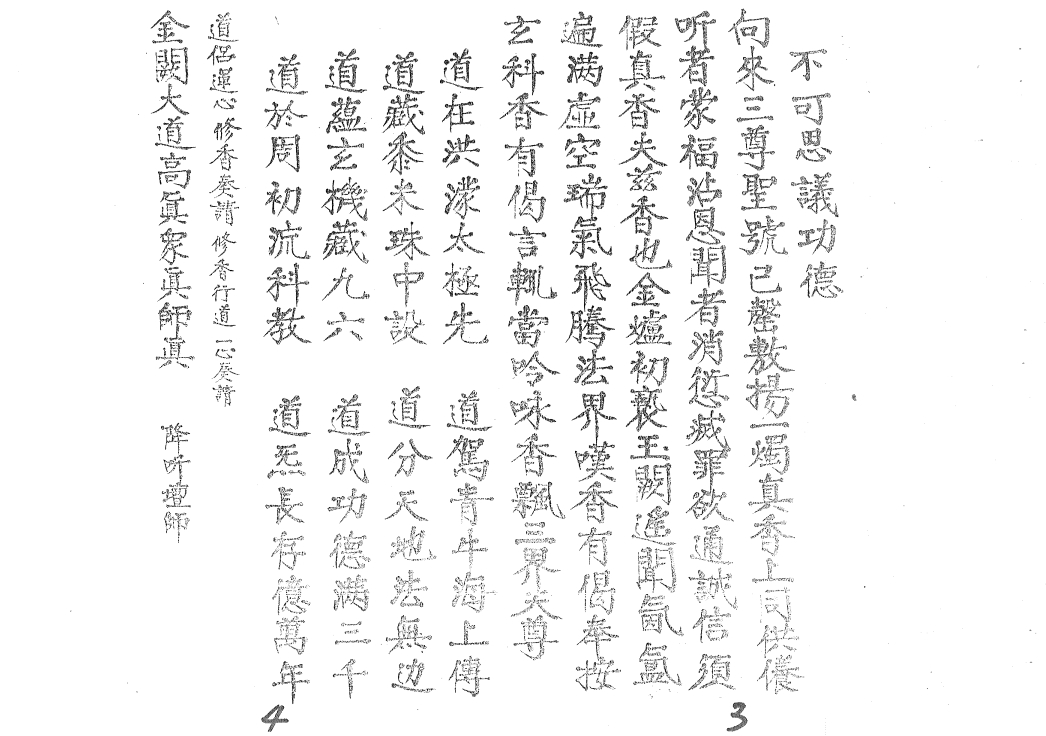 不可思議功德
向來三尊聖號已罄敷揚一燭真香上司供養
听者蒙福沾恩聞者消愆滅罪欲通誠信須
假真香夫兹香也金爐初爇玉闕遙聞氤氳
遍满虛空瑞氣飛騰法界嘆香有偈奉按
玄科香有偈言輒當吟咏香飄三界天尊
道在洪濛太極先 道駕青牛海上傳
道藏黍米珠中設 道分天地法無边
道蘊玄機藏九六 道成功德满三千
道於周初流科教 道炁長存億萬年
道侶運心 修香奏請 修香行道 一心奏請
金闕大道高眞衆眞師眞 降听壇師
3
4